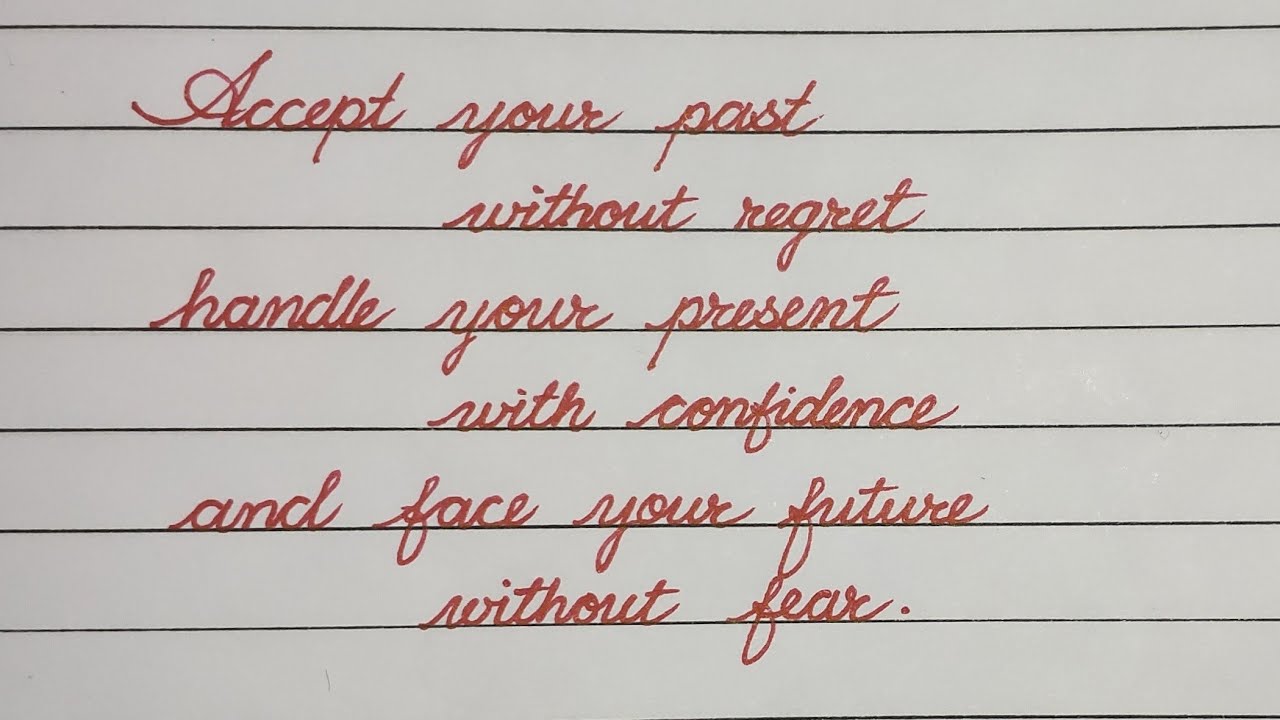 Accept your past
without regret
handle your present
with confidence
and face your future
without fear.